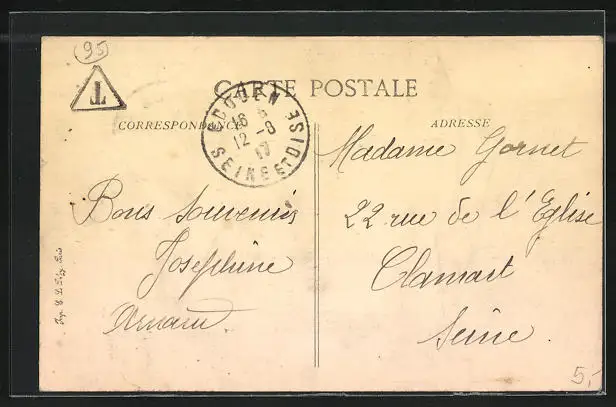 95
T
CARTE POSTALE
CORRESPONDANCE
ADRESSE
ECOUEN
16
12 -8
17
SEINE ET OISE
Bons souvenirs
Josephine
Madame Gornet
22 rue de l'Eglise
Clamart
Seine.
5,-